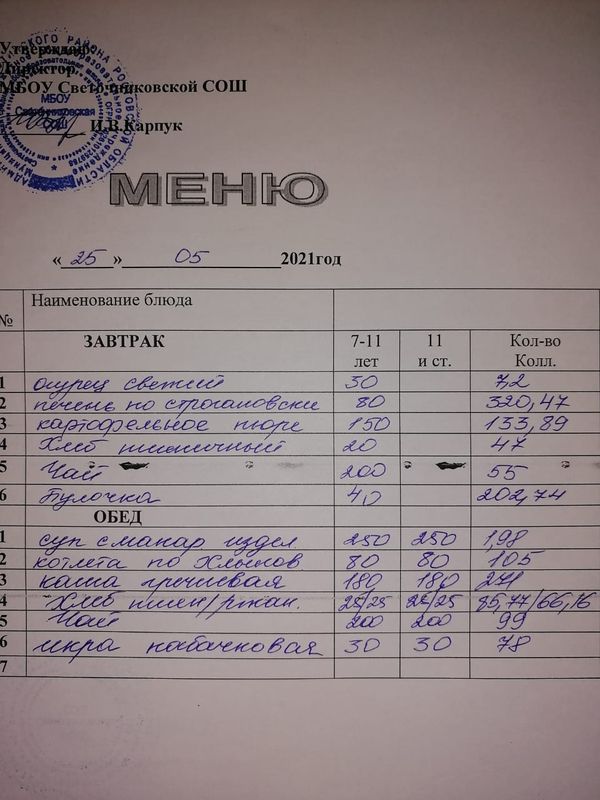 Утверждаю:
Директор
МБОУ Светочниковской СОШ
И.В.Карпук
МБОУ
Светочниковская
СОШ
МЕНЮ
« 25 » 05 2021год
№ Наименование блюда
ЗАВТРАК 7-11 лет 11 и ст. Кол-во Колл.
1 огурец свежий 30 7,2
2 печень по строгановски 80 320,47
3 картофельное пюре 150 133,89
4 Хлеб пшеничный 20 47
5 Чай 200 55
6 Булочка 40 202,74
ОБЕД
1 суп с макар издел 250 250 1,98
2 котлета по Хлынов 80 80 105
3 каша гречневая 180 180 271
4 Хлеб пшен/ржан. 25/25 25/25 85,77/66,16
5 Чай 200 200 99
6 икра кабачковая 30 30 78
7